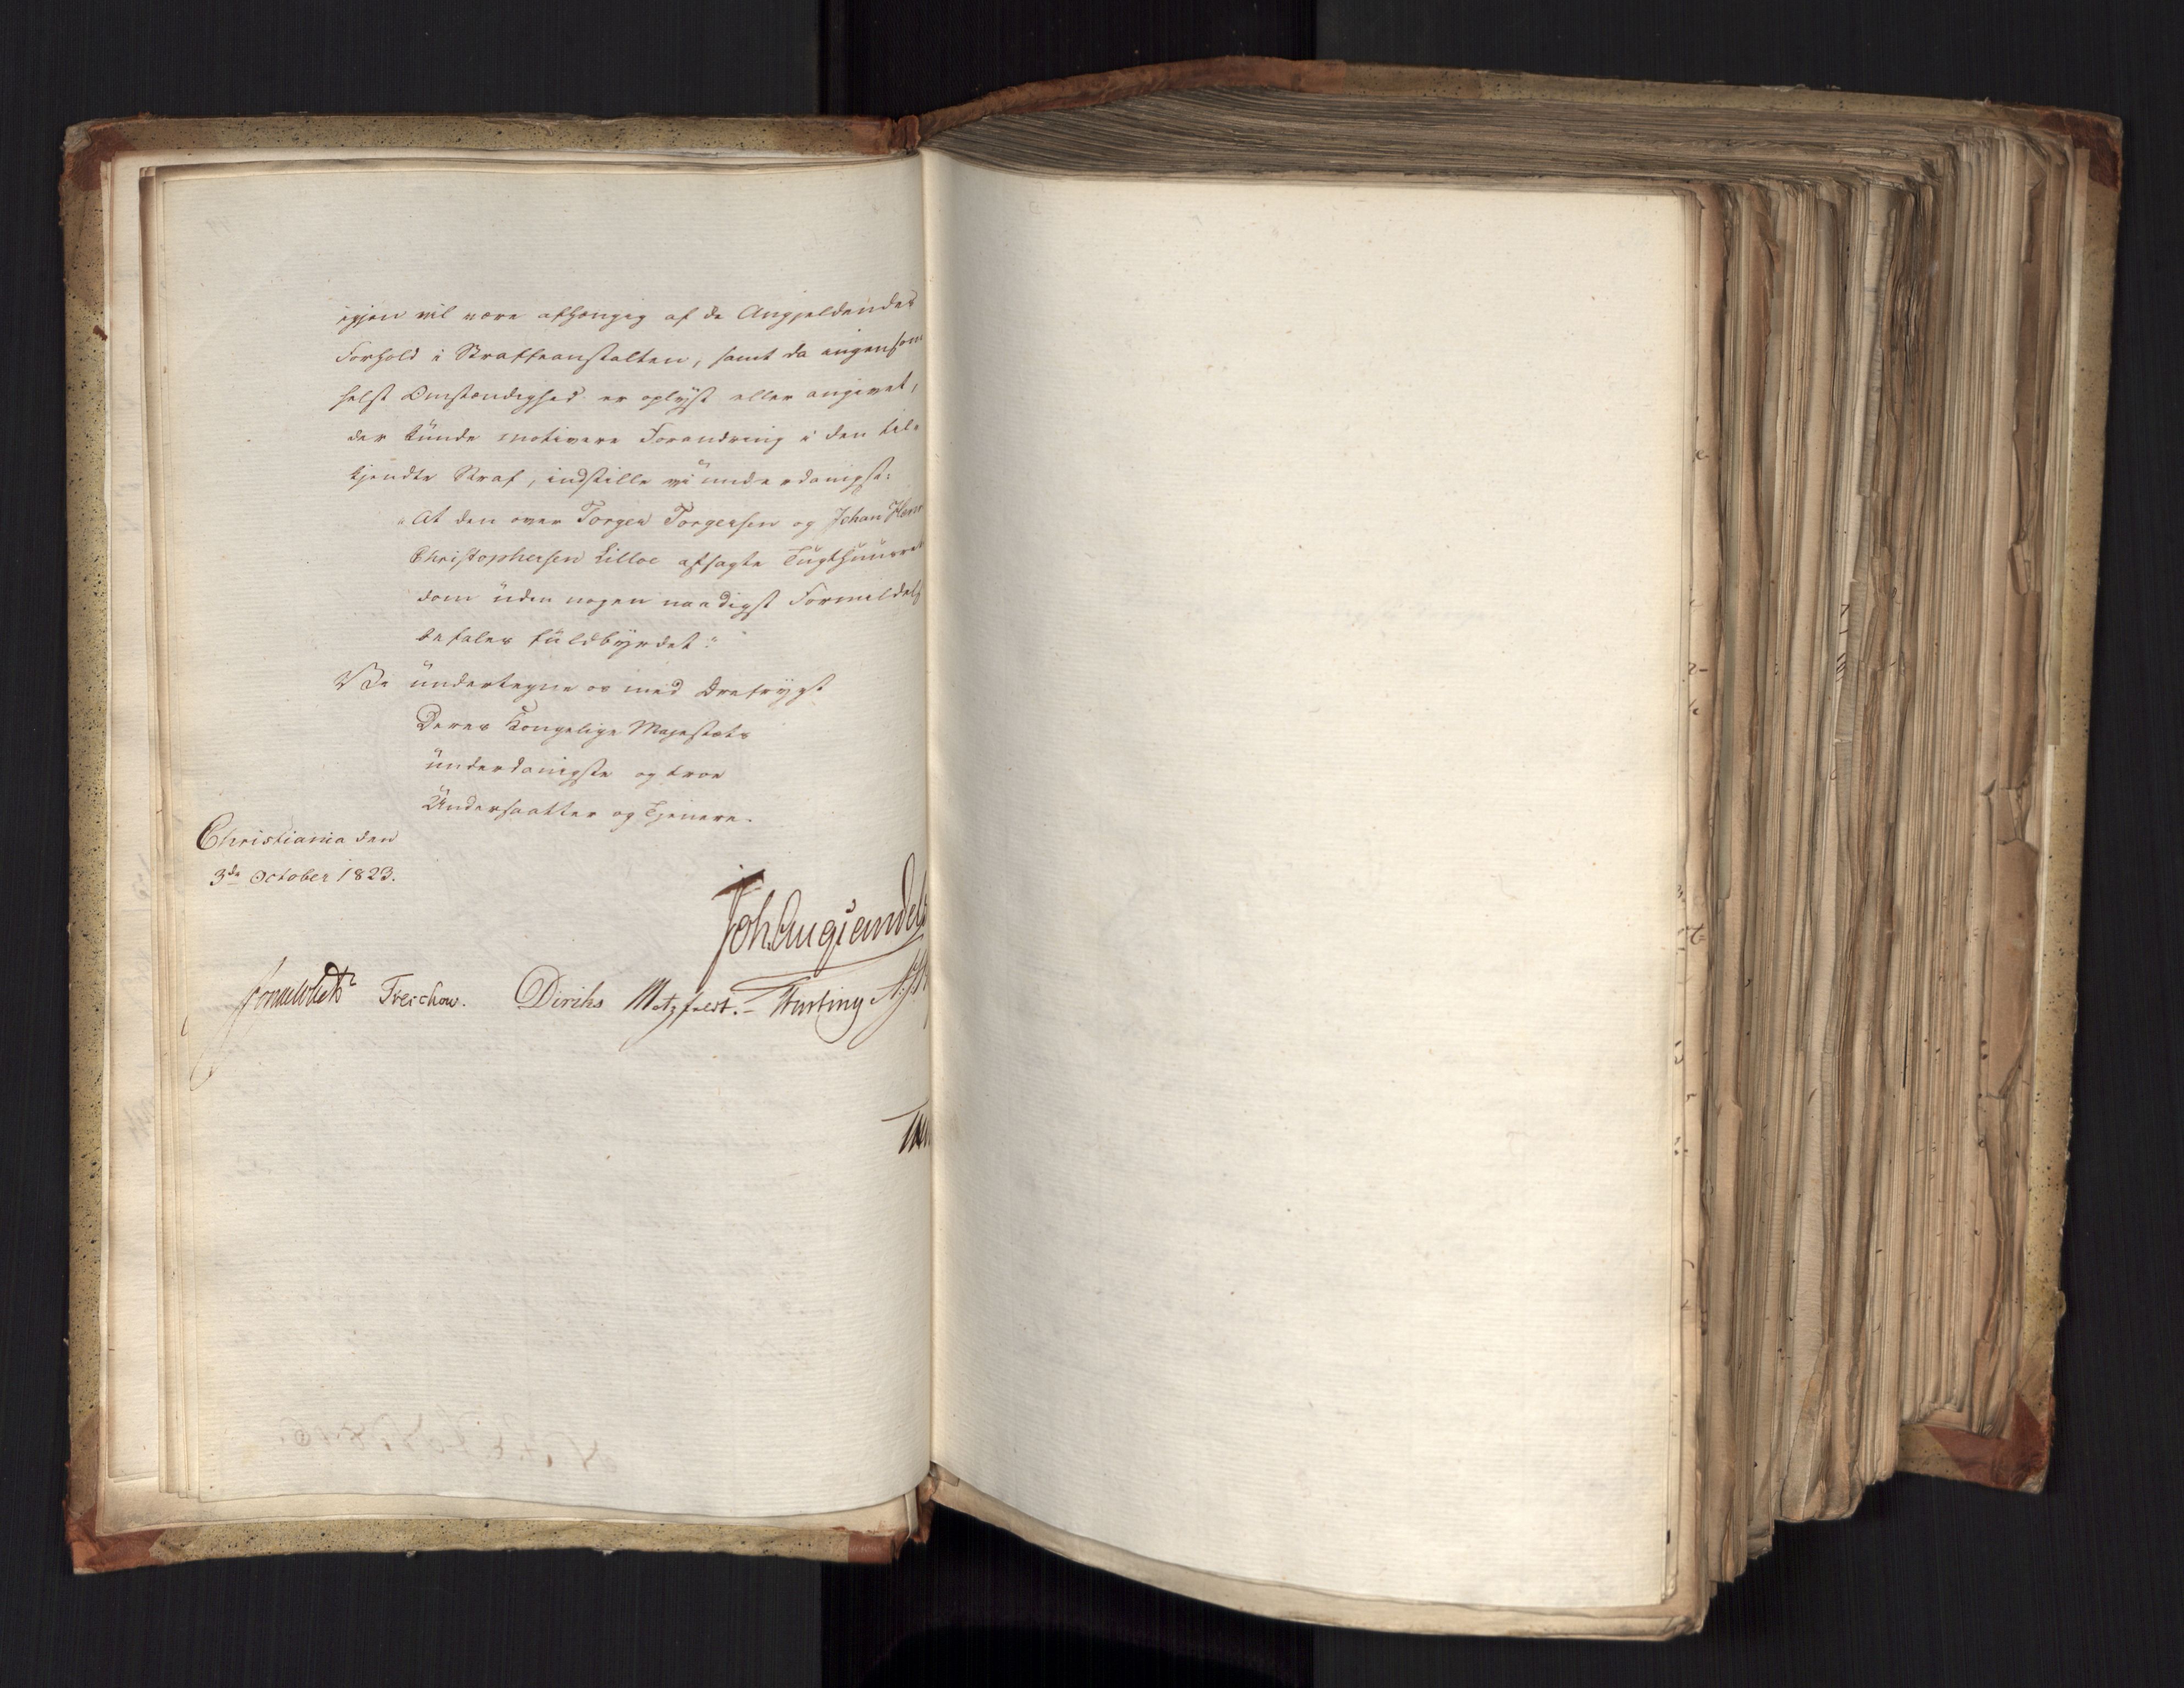 igjen vil være afhængig af de Angjeldendes
Forhold i Straffeanstalten, samt da ingensom
helst Omstændighed er oplyst eller angivet,
der kunde motivere Forandring i den til-
kjendte Straf, indstille vi underdanigst:
"At den over Torger Torgersen og Johan Henr
Christophersen Lilloe afsagte Tugthuus
dom uden nogen naadigst Formildels
befales fuldbyrdet:"
Vi undertegne os med Dybfrygt
Deres Kongelige Majestæts
underdanigste og troe
Undersaatter og Tjenere.
Christiania den
3de October 1823.
Joh. Aug.
Sommerhielm Treschow. Diriks Motzfeldt. Fasting